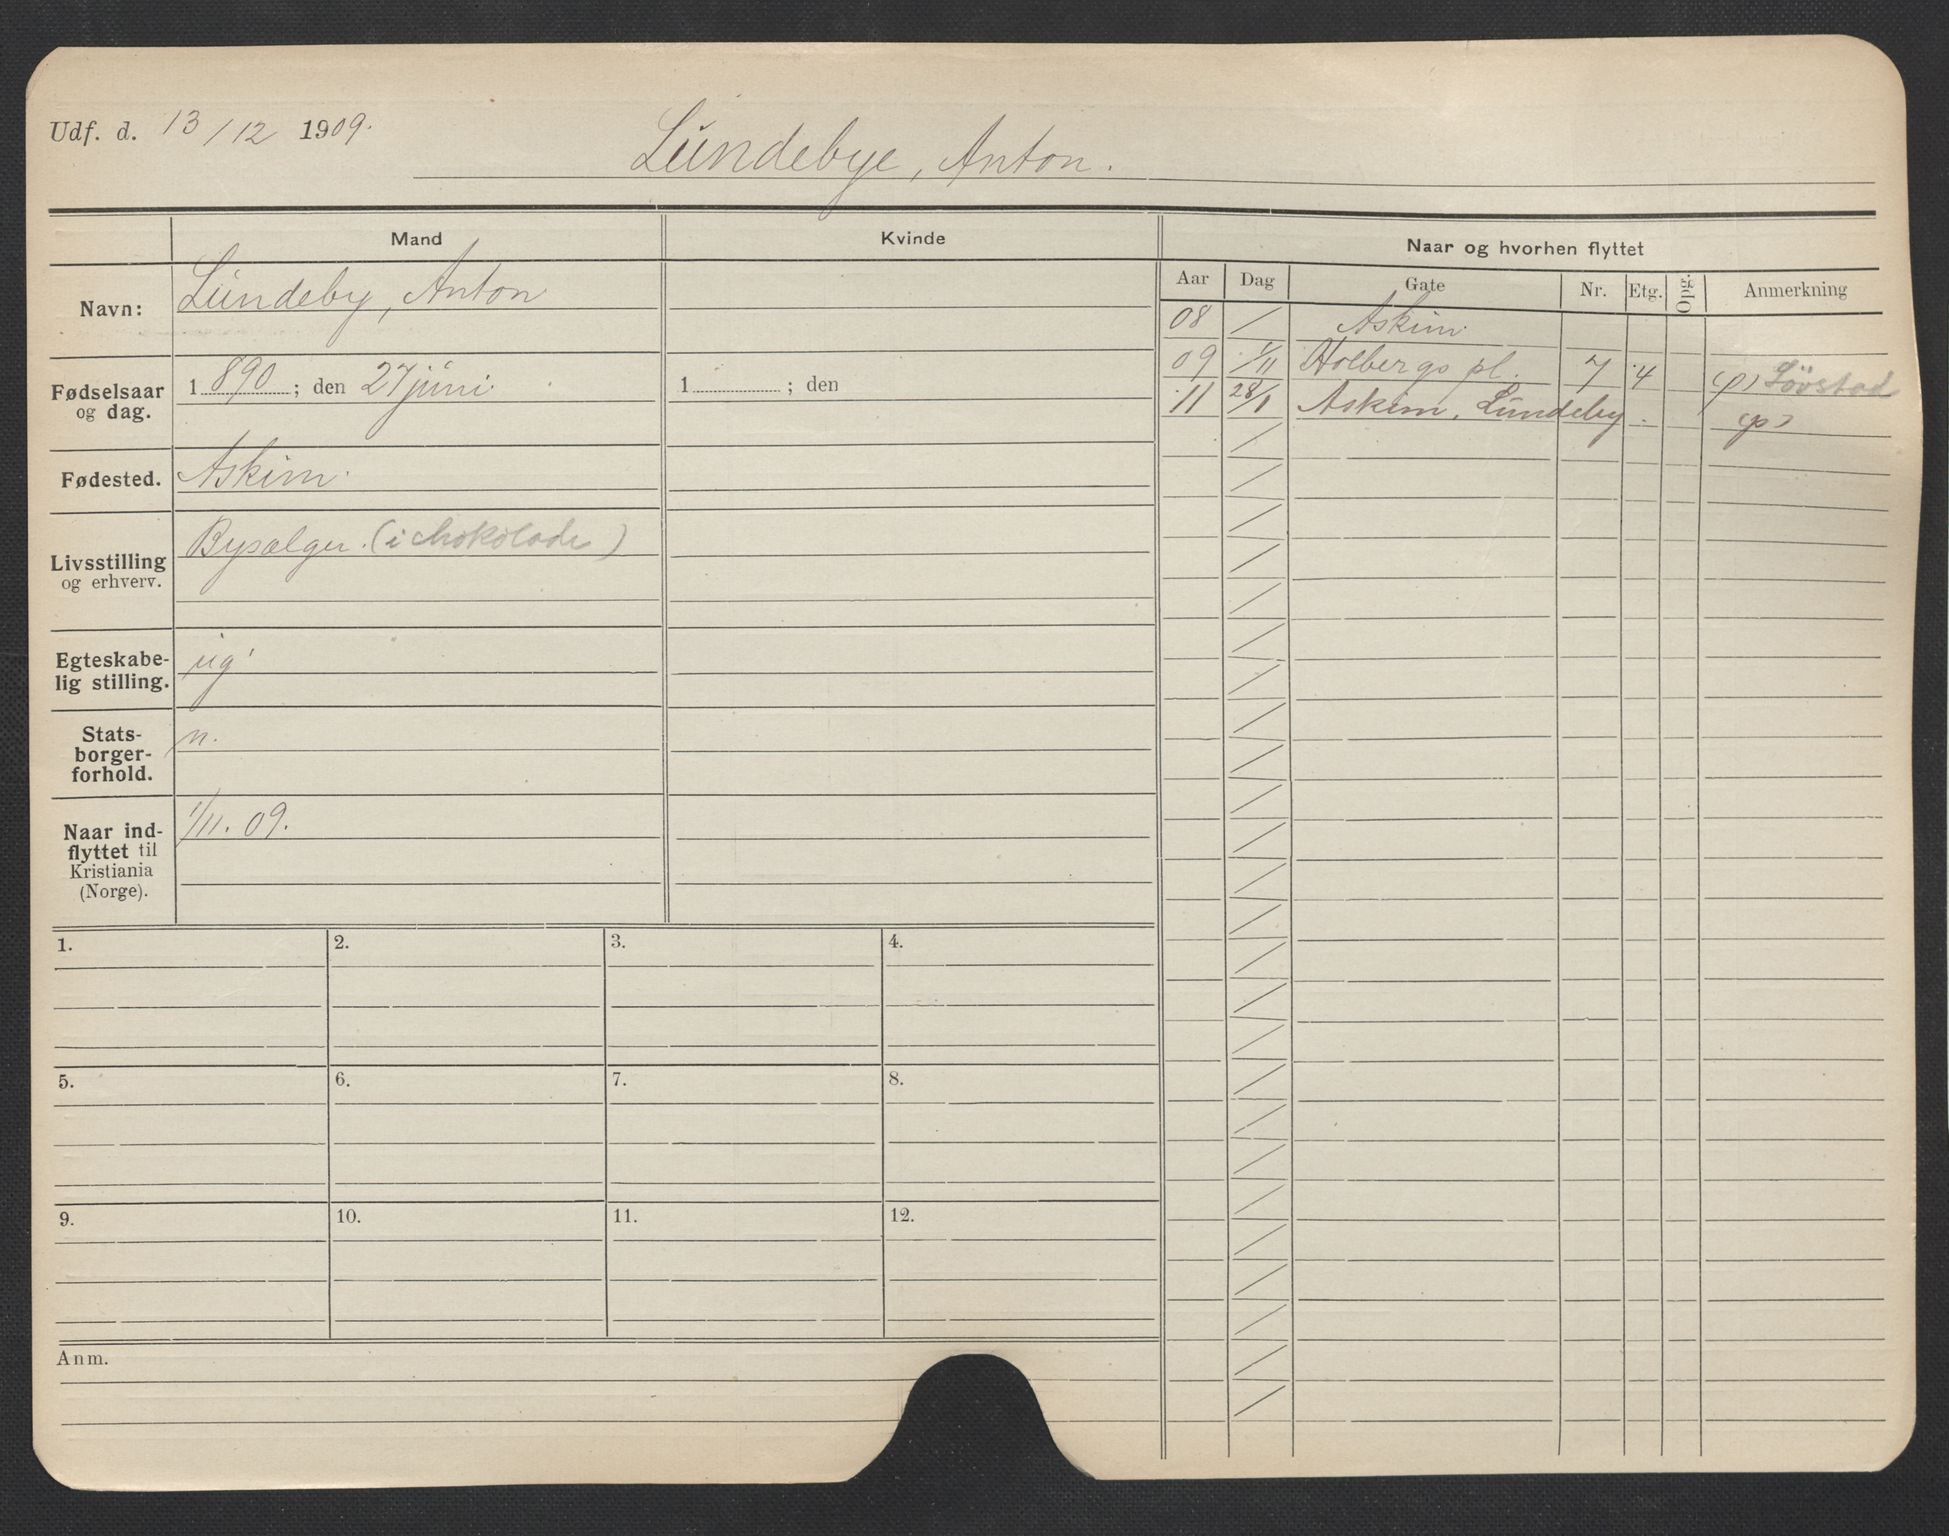 Udf. d. 13/12 1909.
Lundebye, Anton.
Mand
Kvinde
Naar og hvorhen flyttet
Aar Dag Gate Nr. Etg. Opg. Anmerkning
Navn: Lundeby, Anton
Fødselsaar og dag. 1890; den 27 juni. 1 ; den
Fødested. Askim.
Livsstilling og erhverv. Bysælger. (i chokolade)
Egteskabe-
lig stilling. ug.
Stats-
borger-
forhold. n.
Naar ind-
flyttet til
Kristiania
(Norge). 1/11. 09.
08 / Askim.
09 1/11 Holbergs pl. 7 4 (p) Lövstad
11 28/1 Askim, Lundeby. (p)
1. 2. 3. 4.
5. 6. 7. 8.
9. 10. 11. 12.
Anm.